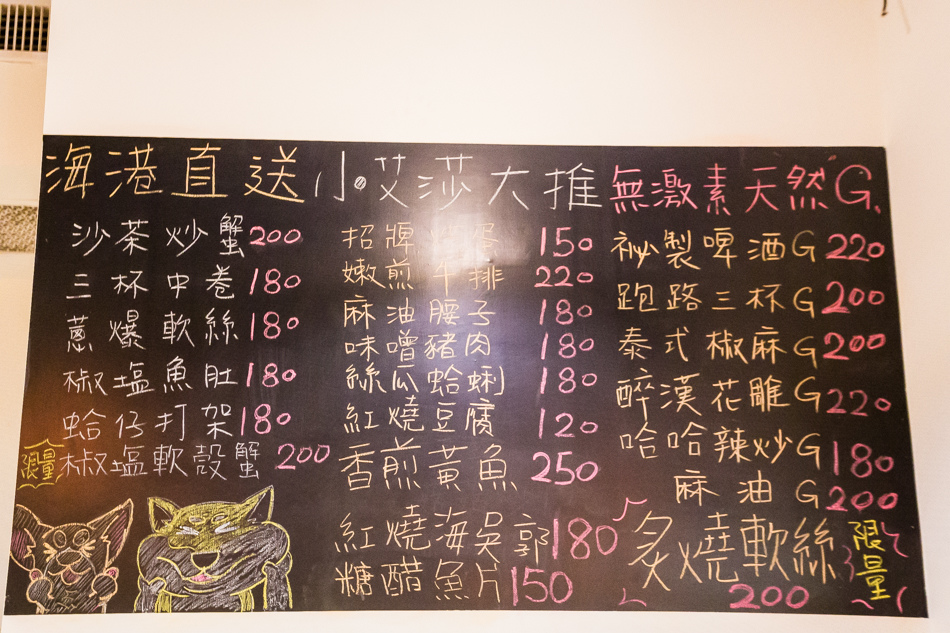 海港直送
沙茶炒蟹200
三杯中卷180
蔥爆軟絲180
椒塩魚肚180
蛤仔打架180
限量 椒塩軟殼蟹200
小艾莎大推
招牌 150
嫩煎牛排220
麻油腰子180
味噌豬肉180
絲瓜蛤蜊180
紅燒豆腐120
香煎黃魚250
紅燒海吳郭180
糖醋魚片150
無激素天然G.
祕製啤酒G220
跑路三杯G200
泰式椒麻G200
醉漢花雕G220
哈哈辣炒G180
麻油G200
炙燒軟絲 限量
200